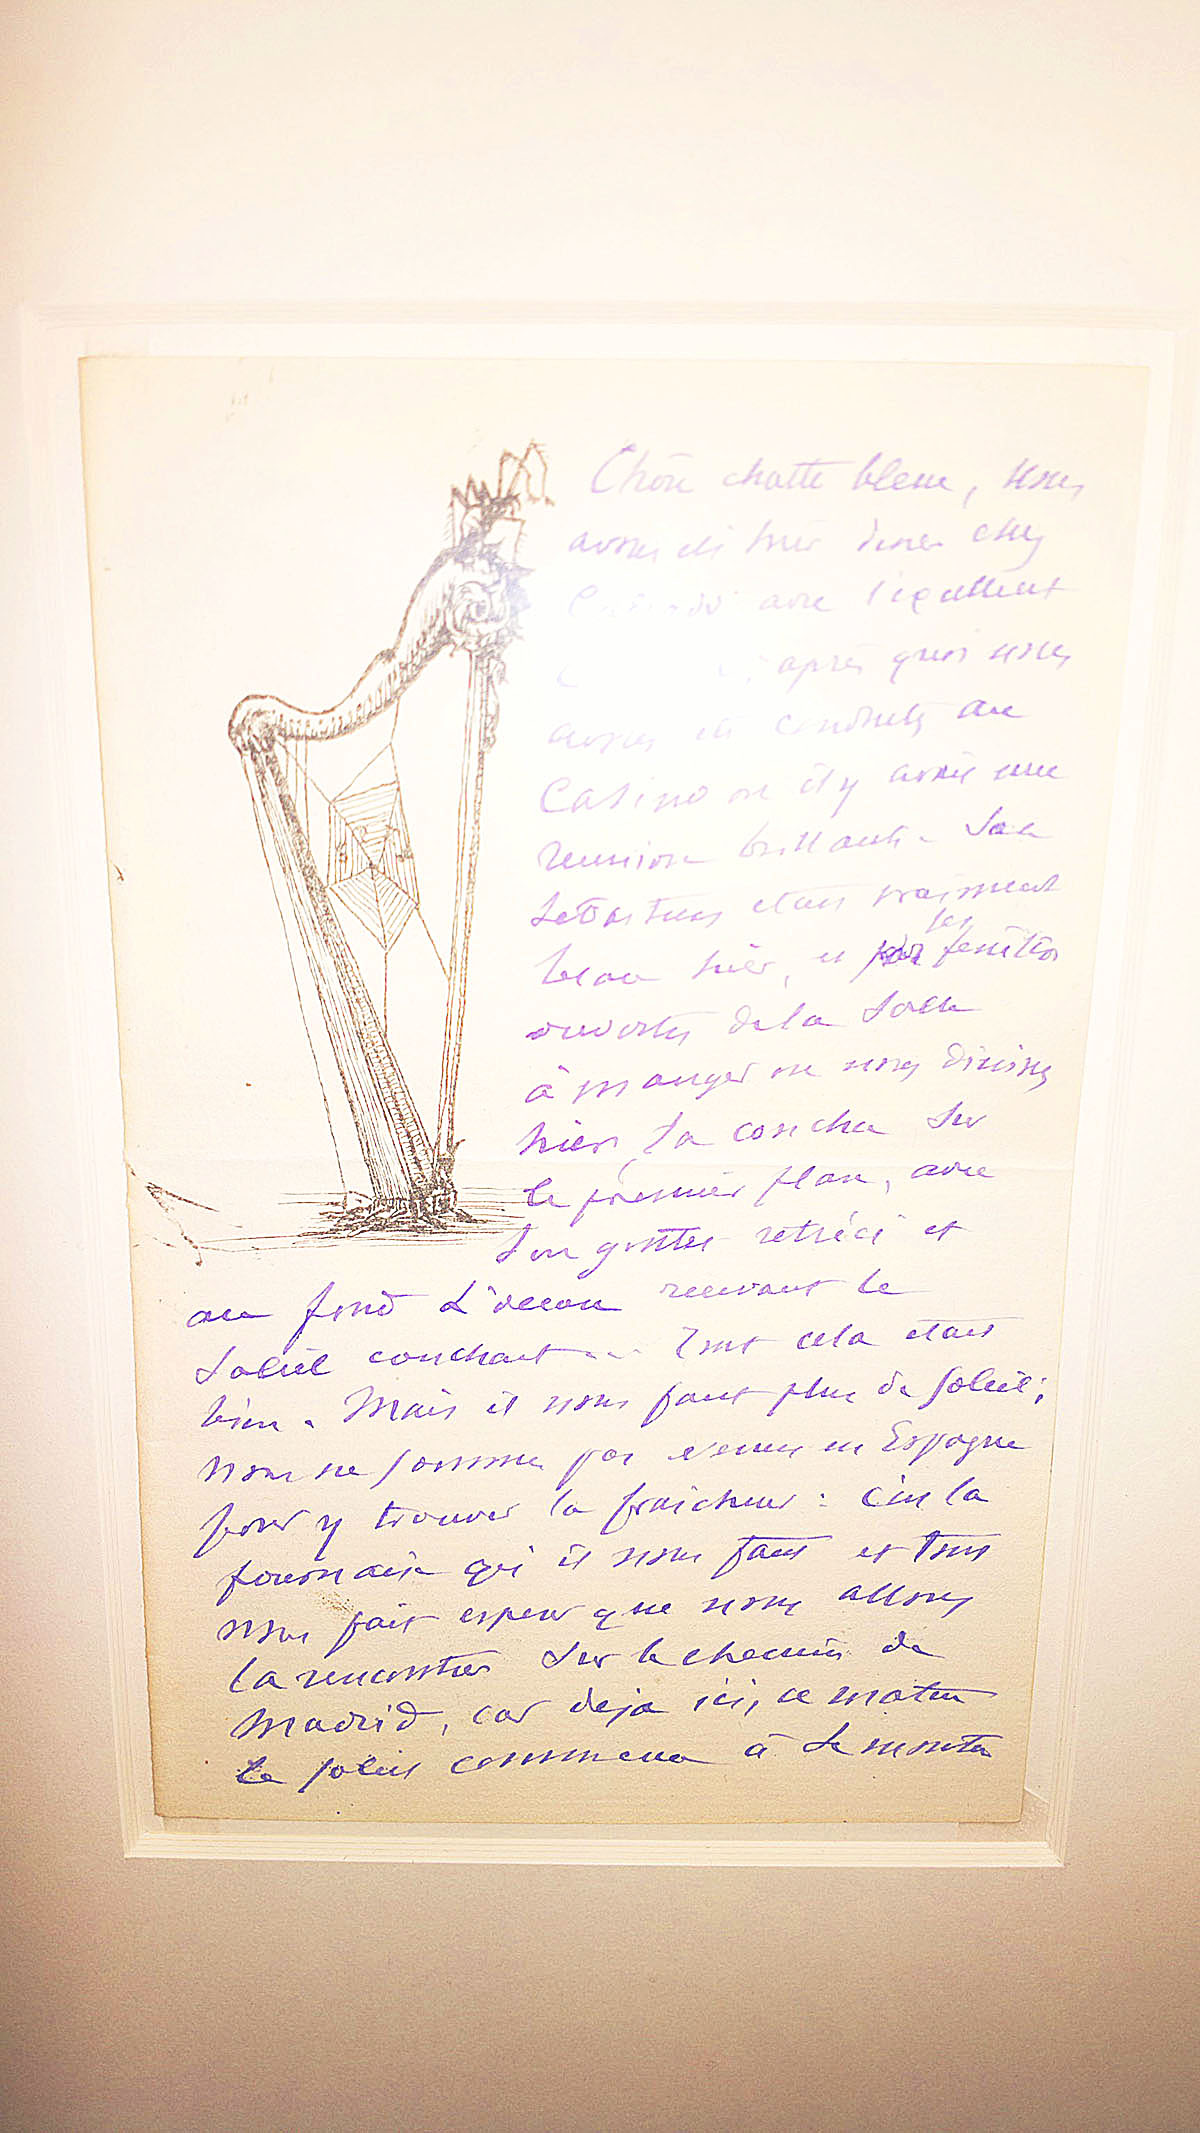 Chère chatte bleue, nous
avons été hier diner chez
avec l'excellent
après quoi nous
avons été conduits au
Casino où il y avait une
reunion brillante. San
Sebastien etait vraiment
beau hier, et les fenêtres
ouvertes de la salle
à manger où nous dinions
hier, la concha sur
le premier plan, avec
son goulet retréci et
au fond L'ocean recevant le
Soleil couchant... Tout cela etait
bien. Mais il nous faut plus de soleil;
nous ne sommes pas venus en Espagne
pour y trouver la fraicheur : c'est la
fournaise qu'il nous faut et tout
nous fait esperer que nous allons
la rencontrer sur le chemin de
Madrid, car deja ici, ce matin
le soleil commence à se montrer